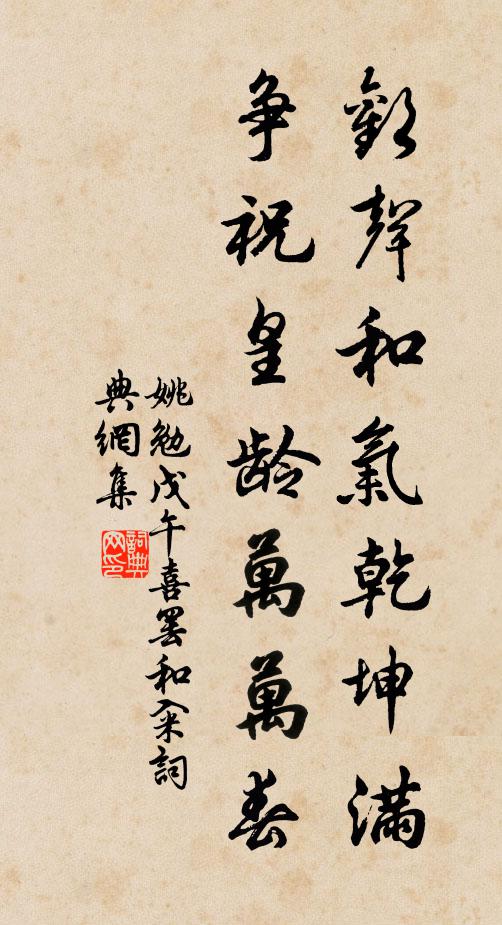 歡聲和氣乾坤滿
爭祝皇齡萬萬春
姚勉戊午喜罷和籴詞
典網集
詞典網印